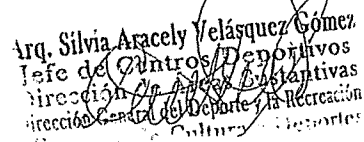 Arq. Silvia Aracely Velásquez Gómez
Jefe de Centros Deportivos
Dirección de Áreas Sustantivas
Dirección General del Deporte y la Recreación
Cultura y Deportes